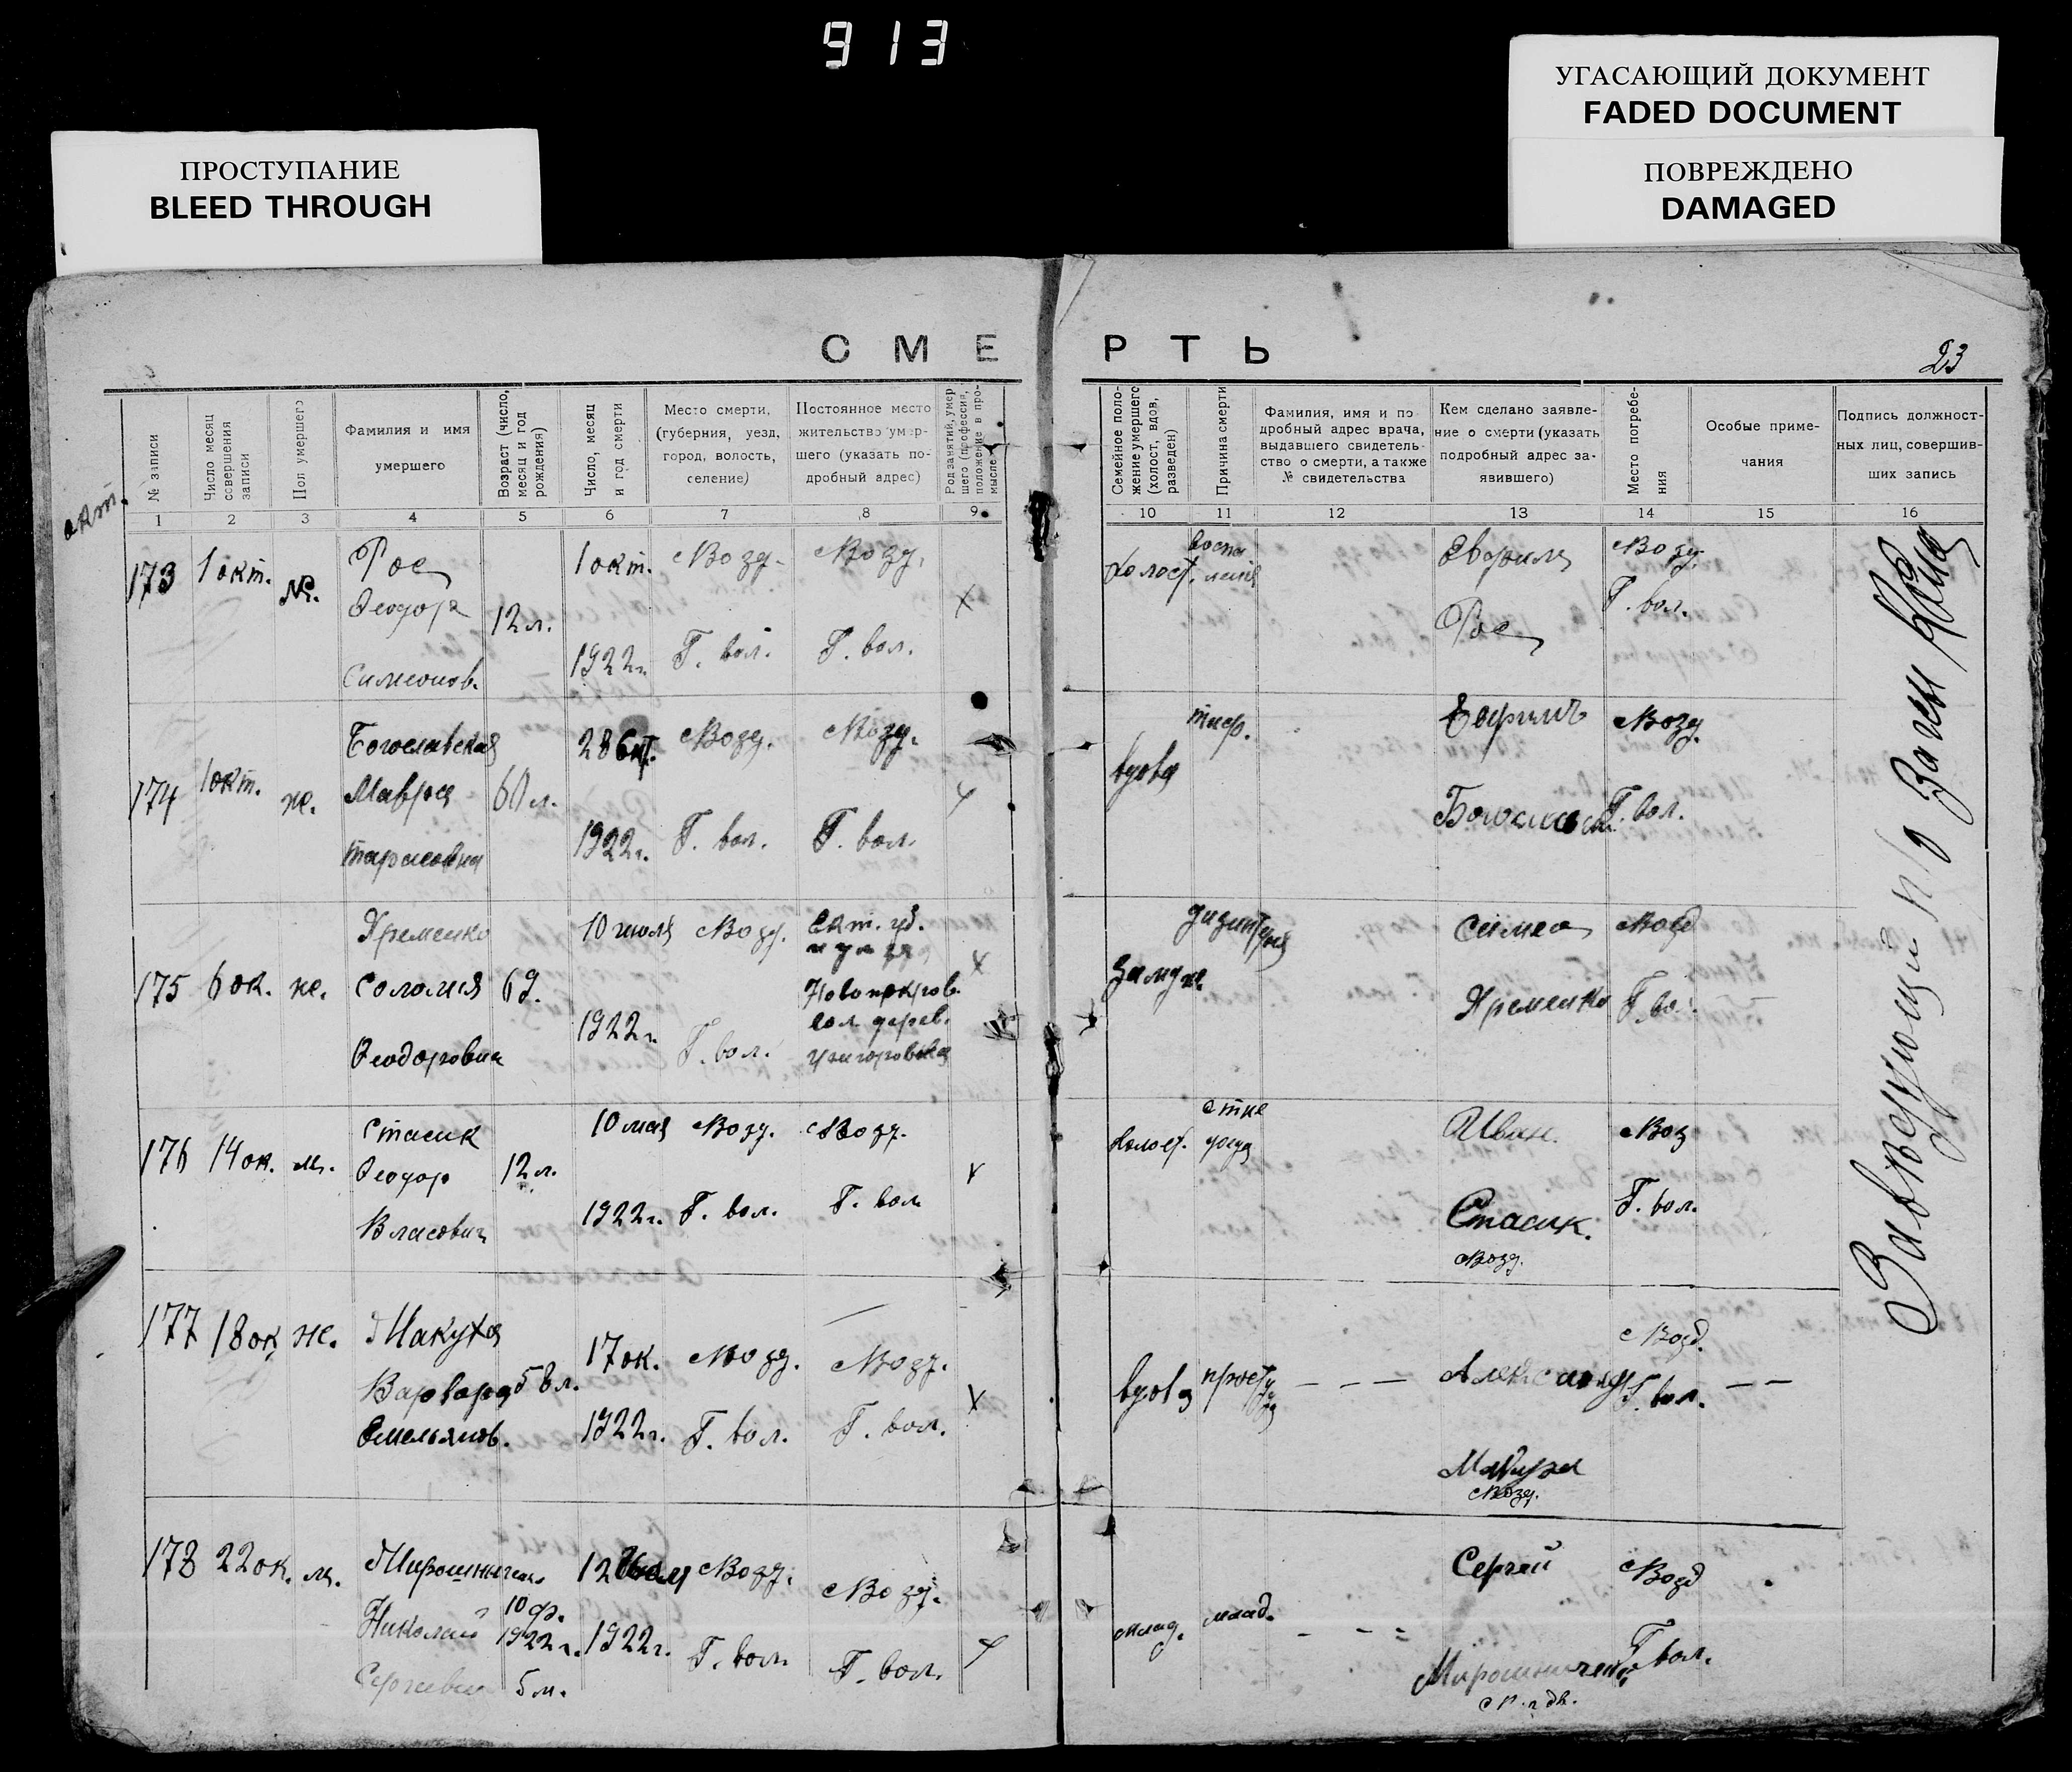 913
УГАСАЮЩИЙ ДОКУМЕНТ
FADED DOCUMENT
ПРОСТУПАНИЕ
BLEED THROUGH
ПОВРЕЖДЕНО
DAMAGED
СМЕРТЬ
23
№ записи
Число месяц совершения записи
Пол умершего
Фамилия и имя умершего
Возраст (число, месяц и год рождения)
Число, месяц и год смерти
Место смерти, (губерния, уезд, город, волость, селение)
Постоянное место жительство умершего (указать подробный адрес)
Род занятий, умершего (профессия, положение в промысле)
Семейное положение умершего (холост, вдов, разведен)
Причина смерти
Фамилия, имя и подробный адрес врача, выдавшего свидетельство о смерти, а также № свидетельства
Кем сделано заявление о смерти (указать подробный адрес заявившего)
Место погребения
Особые примечания
Подпись должностных лиц, совершивших запись
1 2 3 4 5 6 7 8 9 10 11 12 13 14 15 16
окт.
173 1 окт. М. Рос 12 л. 1 окт. Возд. Возд. х Холост. Рос Возд.
Симеонов. 1922 г. Г. вол. Г. вол. Г. вол.
174 1 окт. ж. Богославская 60 л. Возд. Возд. вдова тиф. Возд.
Мавра
Тарасовна 1922 г. Г. вол. Г. вол. Г. вол.
175 6 ок. ж. Яременко 69. 10 июля Возд. Екат. губ. Яременко Возд
Соломия Новопокров.
вол. дерев.
1922 г. Г. вол. Г. вол.
176 14 ок. м. Стасик 12 л. 10 мая Возд. Возд. холост. Иван. Воз
Феодор
Власович 1922 г. Г. вол. Г. вол. Стасик. Г. вол.
Возд.
177 18 ок. же. Макуха 58 л. 17 ок. Возд. Возд. вдова простуда – – – Возд. – –
Варвара
Емельянов. 1922 г. Г. вол. Г. вол. Г. вол.
Возд.
178 22 ок. м. Мирошниченко 10 ф. Возд. Возд. млад. млад. Сергей Возд
Николай 1922 г.
Сергеевич 5 м. 1922 г. Г. вол. Г. вол. Мирошниченко Г. вол.
Заведующий п/о Загс